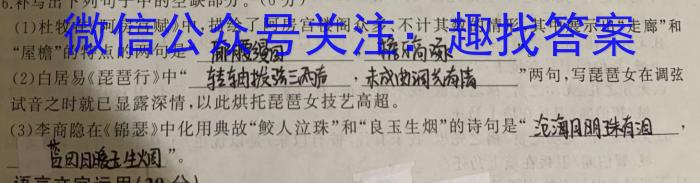 6.补写出下列句子中的空缺部分。(6分)
(1)杜牧 描绘了阿房宫楼阁众多、不计其数 情形,其中展示 "走廊"和
微信公众号关注:趣找答案
"屋檐"的特点的两句是" 廊腰缦回
(2)白居易《琵琶行》中" 转轴拨弦三两声 , 未成曲调先有情 "两句,写琵琶女在调弦
试音之时就已显露深情,以此烘托琵琶女技艺高超。
(3)李商隐在《锦瑟》中化用典故"鲛人泣珠"和"良玉生烟"的诗句是" 沧海月明珠有泪 ,
蓝田日暖玉生烟 "。